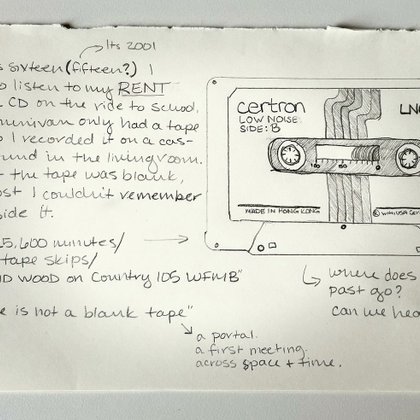 Its 2001
s sixteen (fifteen?) I
o listen to my RENT
CD on the ride to school.
minivan only had a tape
o I recorded it on a cas-
und in the livingroom.
t the tape was blank,
ost I couldn't remember
side it.
5,600 minutes/
tape skips/
ID WOOD on Country 105 WFMB"
e is not a blank tape"
a portal.
a first meeting.
across space + time.
certron
LOW NOISE
SIDE: B
LN
MADE IN HONG KONG
where does
past go?
can we hea